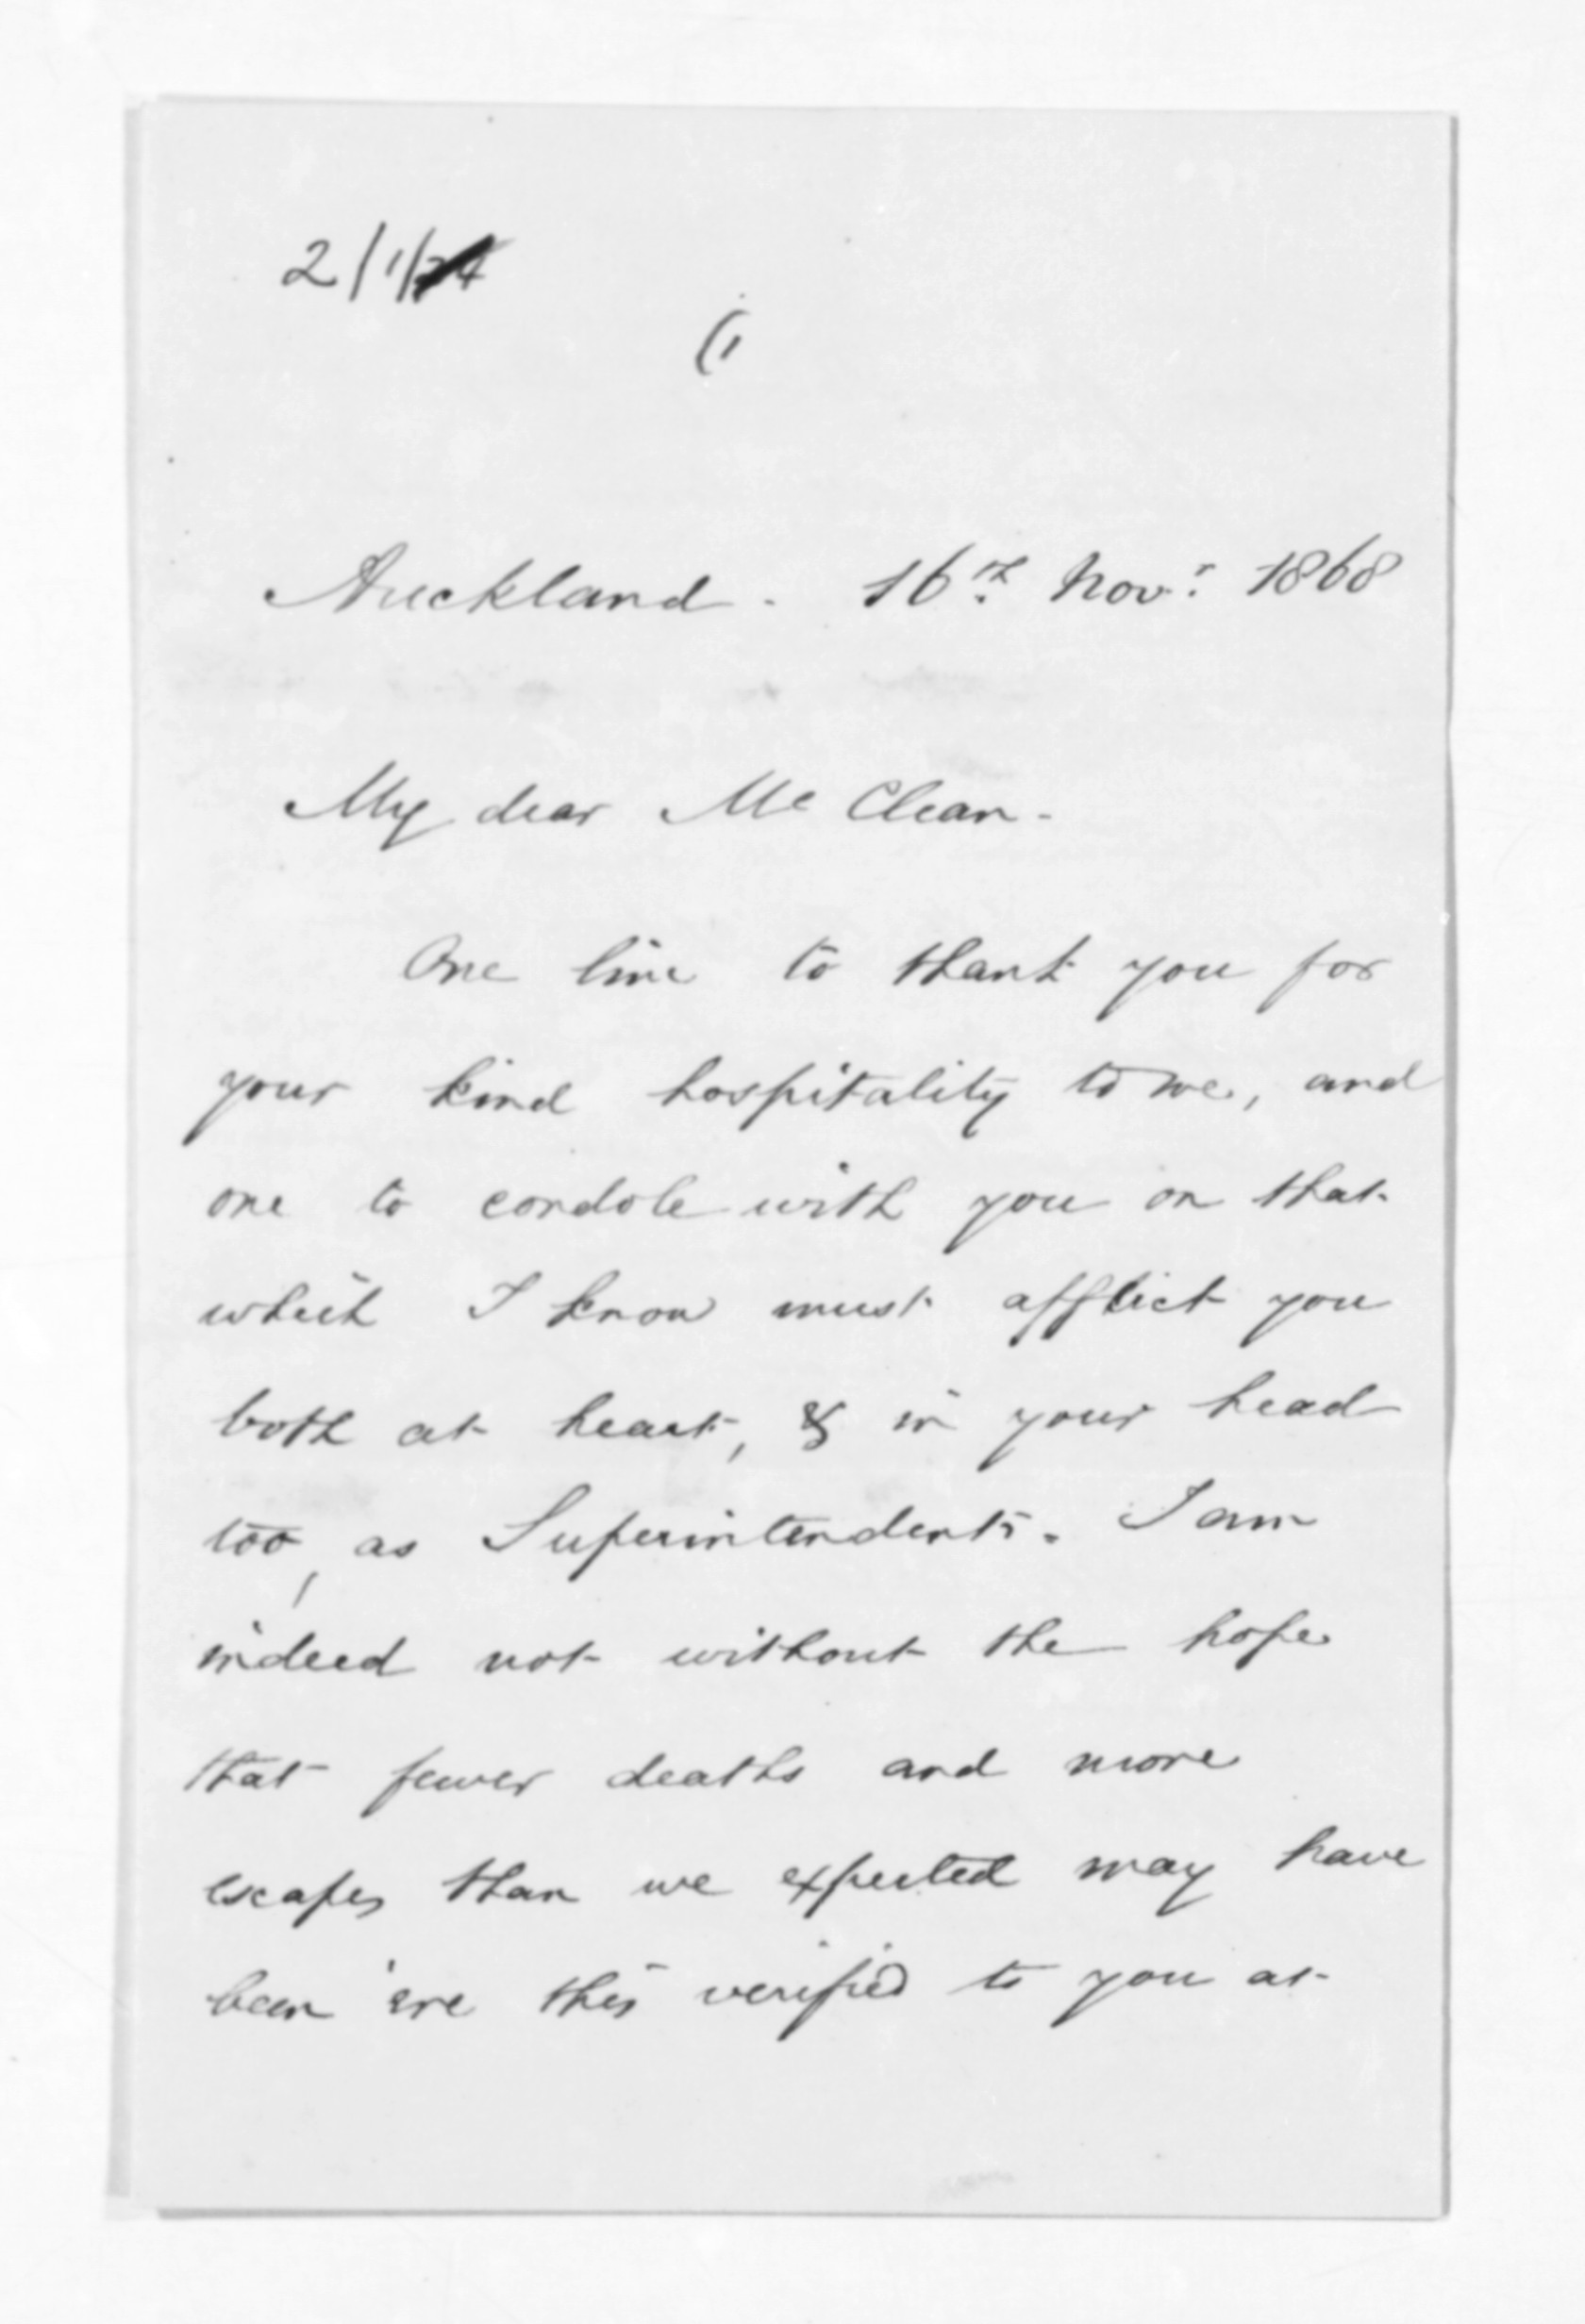 2/1/
(1
Auckland - 16th. Novr: 1868
My dear McClean -
One line to thank you for
your kind hospitality to me, and
one to condole with you on that
which I know must afflict you
both at heart, & in your head
too, as Superintendent. I am
indeed not without the hope
that fewer deaths and more
escapes than we expected may have
been 'ere this verified to you at